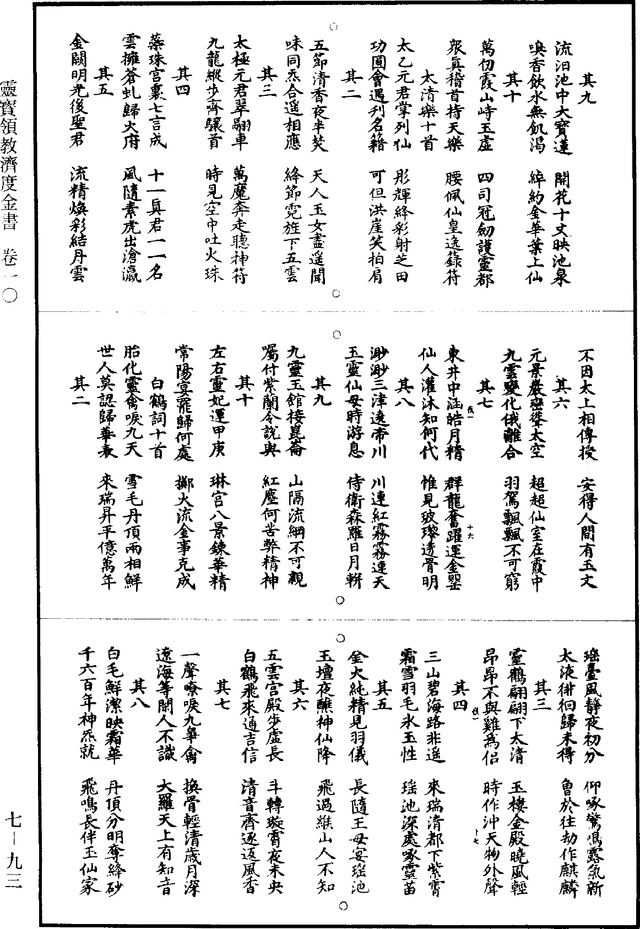 其九
流汨池中大寶蓮　開花十丈映池泉
嗅香飲水無飢渴　綽約金華葉上仙
其十
萬仞霞山峙玉虛　四司冠劒護靈都
衆真稽首持天樂　腰佩仙皇逸籙符
太清樂十首
太乙元君掌列仙　彤輝絳彩射芝田
功圓會遇刋名籍　可但洪崖笑拍肩
其二
五節清香夜半焚　天人玉女盡遥聞
味同炁合遥相應　絳節霓旌下五雲
其三
太極元君翠翮車　萬魔奔走聽神符
九龍縱步齊驤首　時見空中吐火珠
其四
蘂珠宫裏七言成　十一真君一一名
雲擁蒼虬歸火府　風隨素虎出滄瀛
其五
金闕明光後聖君　流精煥彩結丹雲
靈寶領教濟度金書　卷一〇
不因太上相傳授　安得人間有玉文
其六
元景巖巒聳太空　超超仙室在霞中
九雲變化俄離合　羽駕飄飄不可窮
其七
東井中涵皓月精　群龍奮躍運金罌
仙人灌沐知何代　惟見玻瓈透骨明
其八
渺渺三津遶帝川　川連紅霧霧連天
玉靈仙母時游息　侍衛森羅日月輧
其九
九靈玉館接崑崙　山隔流綱不可親
囑付紫蘭令説與　紅塵何苦弊精神
其十
左右靈妃運甲庚　琳宫八景鍊華精
常陽宴罷歸何處　擲火流金事克成
白鶴詞十首
胎化靈禽唳九天　雪毛丹頂兩相鮮
世人莫認歸華表　來瑞昇平億萬年
其二
瑶臺風静夜初分　仰啄驚鳴露氣新
太液徘徊歸未得　曾於往劫作麒麟
其三
靈鶴翩翩下太清　玉樓金殿曉風輕
昂昂不與雞爲侣　時作沖天物外聲
其四
三山碧海路非遥　來瑞清都下紫霄
霜雪羽毛氷玉性　瑶池深處啄靈苗
其五
金火純精見羽儀　長隨王母宴瑶池
玉壇夜醮神仙降　飛過緱山人不知
其六
五雲宫殿步虛長　斗轉璇霄夜未央
白鶴飛來通吉信　清音齊逐返風香
其七
一聲嘹唳九臯禽　換骨輕清歲月深
遼海等閑人不識　大羅天上有知音
其八
白毛鮮潔映霜華　丹頂分明奪絳砂
千六百年神炁就　飛鳴長伴玉仙家
七—九三